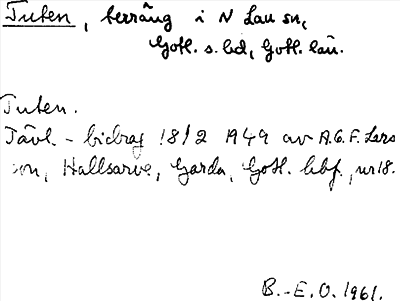 Tuten, terräng i N Lau sn,
Gotl. s. hd, Gotl. län.
Tuten.
Tävl.-bidrag 18/2 1949 av A.G.F. Lars
son, Hallsarve, Garda, Gotl. hbf, nr 18.
B.-E.O. 1961.